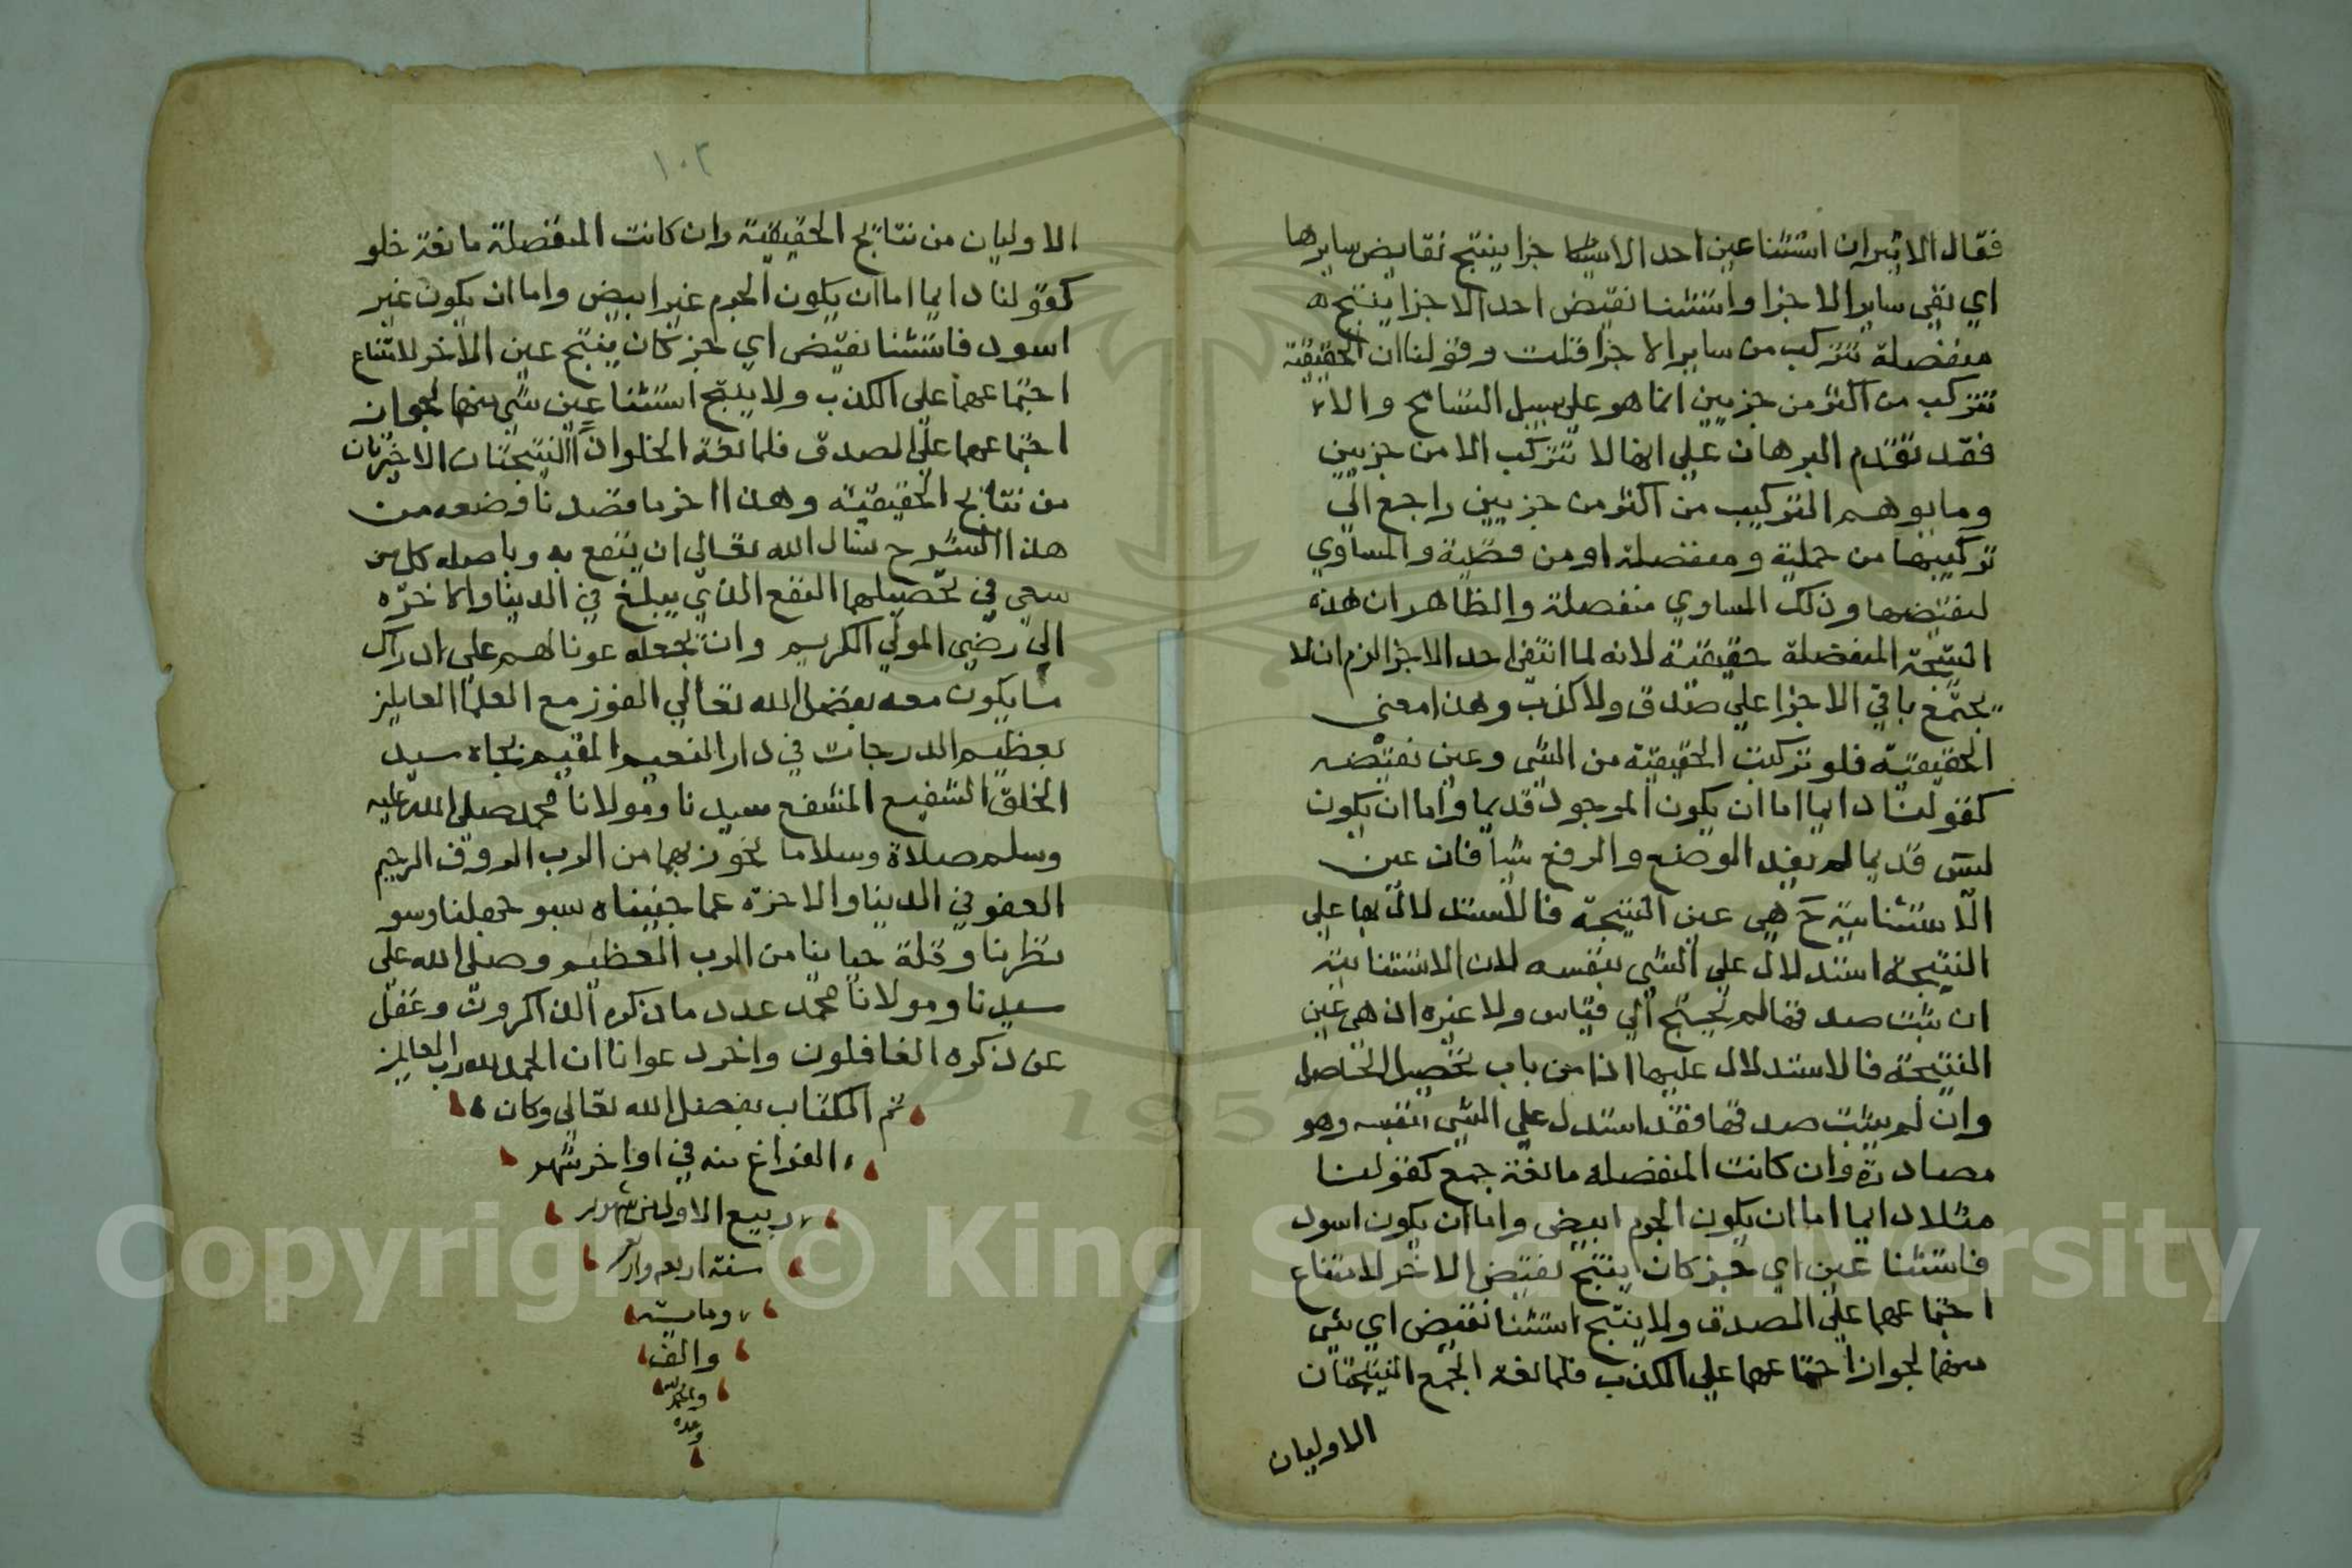 فقال الاثيران استثنا عين احد الاشيا جزا ينتج نقايض سايرها
اي نفي ساير الاجزا واستثنا نقيض احد الاجزا ينتج
منفصلة تتركب من ساير الاجزا قلت وقولنا ان الحقيقية
تتركب من اكثر من جزيين انما هو على سبيل التسامح والا
فقد تقدم البرهان علي انها لا تتركب الا من جزيين
وما يوهم التركيب من اكثر من جزيين راجع الي
تركيبها من حملية ومنفصلة او من قضية والمساوي
لنقيضها وذلك المساوي منفصلة والظاهر ان هذه
النتيجة المنفصلة حقيقية لانه لما انتفي احد الاجزا لزم ان لا
يجتمع باقي الاجزا علي صدق ولا كذب وهذا معني
الحقيقية فلو تركبت الحقيقية من الشي وعين نقيضه
كقولنا دايما اما ان يكون الموجود قديما واما ان يكون
ليس قديما لم يفد الوضع والرفع شيا فان عين
الاستثنايية ح هي عين النتيجة فالاستدلال بها علي
النتيجة استدلال علي الشي بنفسه لان الاستثنايية
ان ثبت صدقها لم تحتج الي قياس ولا غيره اذ هي عين
النتيجة فالاستدلال عليها اذا من باب تحصيل الحاصل
وان لم يثبت صدقها فقد استدل علي الشي بنفسه وهو
مصادرة وان كانت المنفصله مانعة جمع كقولنا
مثلا دايما اما ان يكون الجرم ابيض واما ان يكون اسود
فاستثنا عين اي جز كان ينتج نقيض الاخر لامتناع
اجتماعهما علي الصدق ولا ينتج استثنا نقيض اي شي
منهما لجواز اجتماعهما علي الكذب فلمانعة الجمع النتيجتان
الاوليان
١٠٢
الاوليان من نتايج الحقيقية وان كانت المنفصلة مانعة خلو
كقولنا دايما اما ان يكون الجرم غير ابيض واما ان يكون غير
اسود فاستثنا نقيض اي جز كان ينتج عين الاخر لامتناع
اجتماعهما علي الكذب ولا ينتج استثنا عين شي منهما لجواز
اجتماعهما علي الصدق فلمانعة الخلو اذا النتيجتان الاخيرتان
من نتايج الحقيقية وهذا اخر ما قصدنا وضعه من
هذا الشرح نسال الله تعالي ان ينفع به وباصله كل من
سعي في تحصيلهما النفع الذي يبلغ في الدنيا والاخره
الي رضي المولي الكريم وان يجعله عونا لهم على ادراك
ما يكون معه بفضل الله تعالي الفوز مع العلما العاملين
بعظيم الدرجات في دار النعيم المقيم بجاه سيد
الخلق الشفيع المشفع سيدنا ومولانا محمد صلى الله عليه
وسلم صلاة وسلاما نحوز بهما من الرب الرووف الرحيم
العفو في الدنيا والاخرة عما جنيناه بسو جهلنا وسو
نظرنا وقلة حياينا من الرب العظيم وصلى الله على
سيدنا ومولانا محمد عدد ما ذكره الذاكرون وغفل
عن ذكره الغافلون واخر دعوانا ان الحمد لله رب العالمين
تم الكتاب بفضل الله تعالي وكان
الفراغ منه في اواخر شهر
ربيع الاول من شهور
سنة اربع
وماية
والف
وحده
Copyright © King Saud University
1957